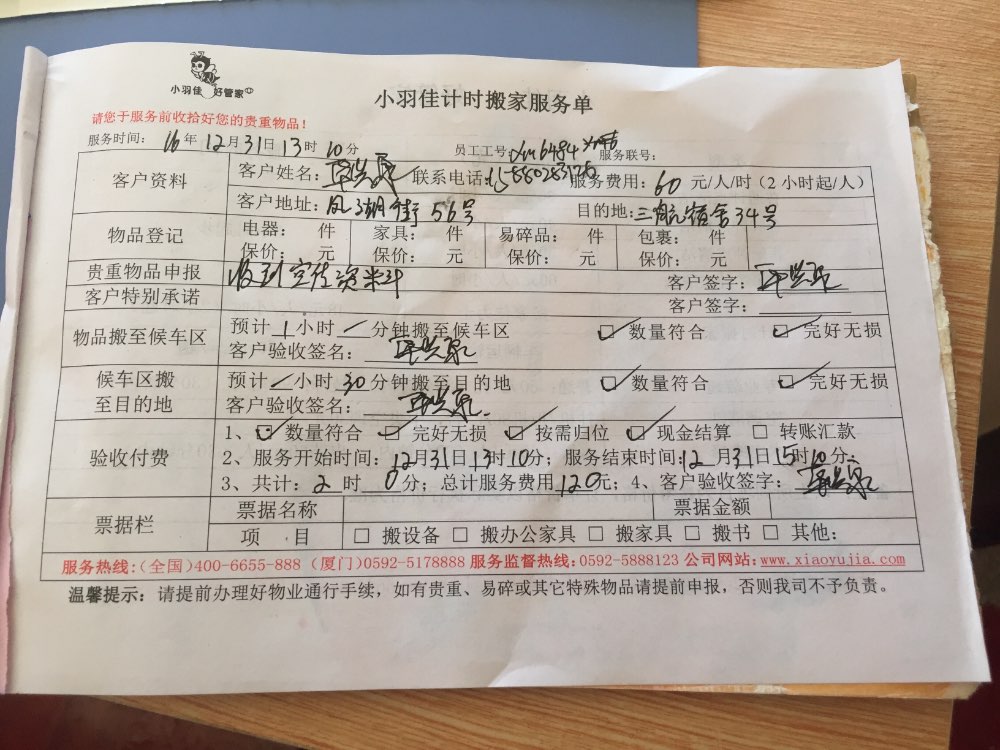 小羽佳 好管家
小羽佳计时搬家服务单
请您于服务前收拾好您的贵重物品!
服务时间: 16年12月31日13时10分 员工工号: Xm6484 服务联号:
客户资料 客户姓名: 联系电话: 服务费用: 60 元/人/时(2小时起/人)
客户地址: 凤湖街56号 目的地: 三航宿舍34号
物品登记 电器: 件 家具: 件 易碎品: 件 包裹: 件
保价: 元 保价: 元 保价: 元 保价: 元
贵重物品申报 收到 资料 客户签字:
客户特别承诺 客户签字:
物品搬至候车区 预计 1 小时 / 分钟搬至候车区 数量符合 完好无损
客户验收签名:
候车区搬至目的地 预计 / 小时 30 分钟搬至目的地 数量符合 完好无损
客户验收签名:
验收付费 1、 数量符合 完好无损 按需归位 现金结算 转账汇款
2、服务开始时间: 12月31日13时10分; 服务结束时间: 12月31日15时10分;
3、共计: 2 时 0 分; 总计服务费用 120 元; 4、客户验收签字:
票据栏 票据名称 票据金额
项 目 搬设备 搬办公家具 搬家具 搬书 其他:
服务热线:(全国)400-6655-888 (厦门)0592-5178888 服务监督热线: 0592-5888123 公司网站: www.xiaoyujia.com
温馨提示: 请提前办理好物业通行手续,如有贵重、易碎或其它特殊物品请提前申报,否则我司不予负责。